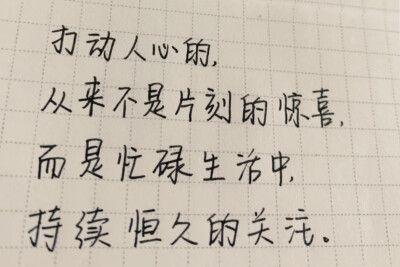 打动人心的,
从来不是片刻的惊喜,
而是忙碌生活中,
持续恒久的关注。